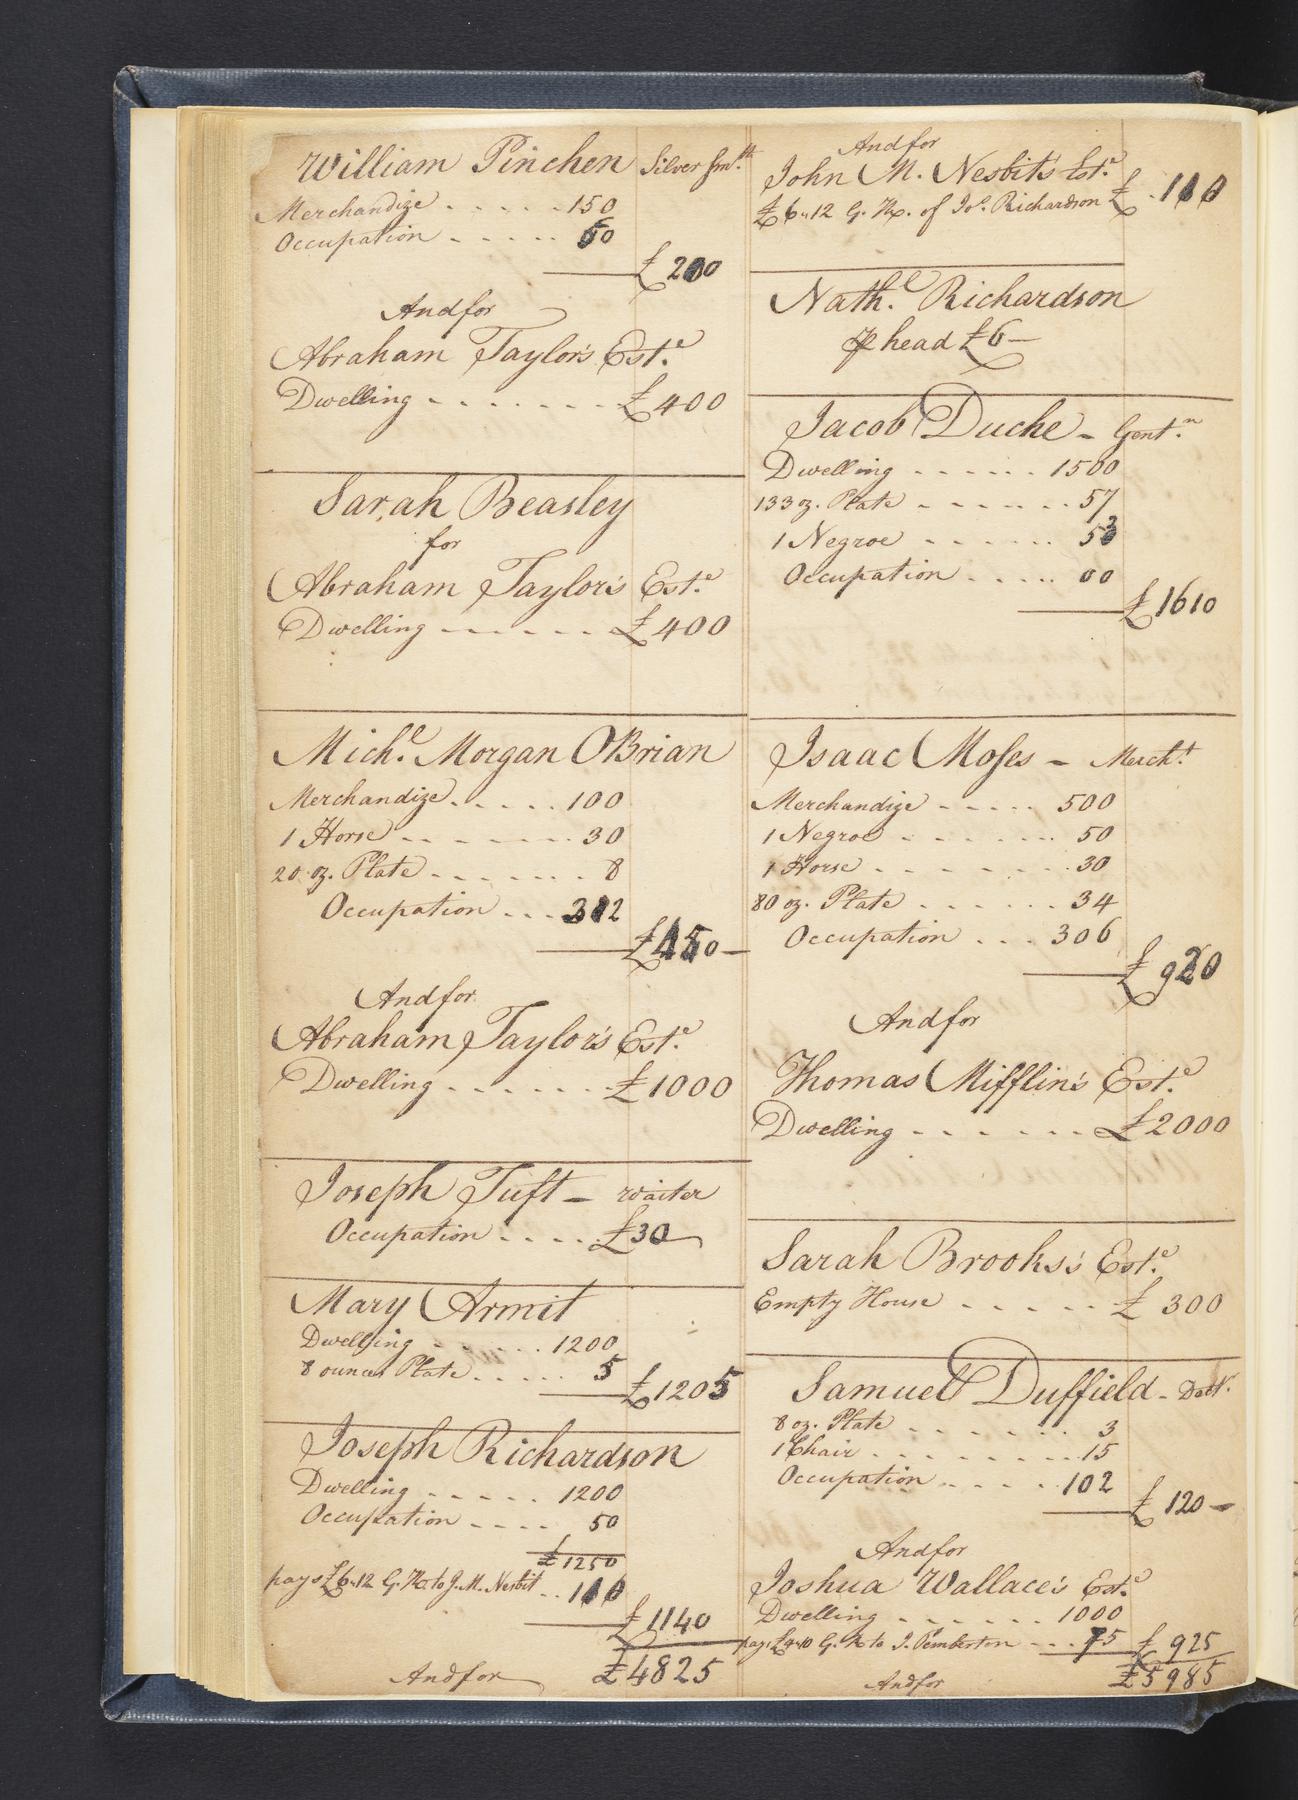 William Pinchen Silver Smth
Merchandize - - - - - 150
Occupation - - - - - 50
£200
And for
Abraham Taylor's Est.e
Dwelling - - - - - - - £400
Sarah Beasley
for
Abraham Taylor's Est.e
Dwelling - - - - - - £400
Mich.l Morgan OBrian
Merchandize - - - - - 100
1 Horse - - - - - - - 30
20 oz. Plate - - - - - - - 8
Occupation - - - 312
£450
And for
Abraham Taylor's Est.e
Dwelling - - - - - - - £1000
Joseph Tuft - waiter
Occupation - - - - £30
Mary Armit
Dwelling - - - - - 1200
8 ounces Plate - - - - - 5
£1205
Joseph Richardson
Dwelling - - - - - 1200
Occupation - - - - 50
£1250
pays £6.12 G. R. to J. M. Nesbit - - 110
£1140
£4825
And for
And for
John M. Nesbit's Est.e
£6.12 G. R. of Jos. Richardson £ 110
Nath.l Richardson
P head £6 -
Jacob Duche - Gent.n
Dwelling - - - - - - 1500
133 oz. Plate - - - - - - - 57
1 Negroe - - - - - - 53
Occupation - - - - - 00
£1610
Isaac Moses - Mercht
Merchandize - - - - - 500
1 Negroe - - - - - - - 50
1 Horse - - - - - - - - 30
80 oz. Plate - - - - - - 34
Occupation - - - 306
£920
And for
Thomas Mifflin's Est.e
Dwelling - - - - - - £2000
Sarah Brooks's Est.e
Empty House - - - - - £ 300
Samuel Duffield - Doct.r
8 oz. Plate - - - - - - - 3
1 Chair - - - - - - - - - 15
Occupation - - - - - 102
£ 120 -
And for
Joshua Wallace's Est.e
Dwelling - - - - - - 1000
pays £4.10 G. R. to J. Pemberton - - - 75 £ 925
£5985
And for